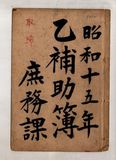 昭和十五年
乙補助簿
庶務課